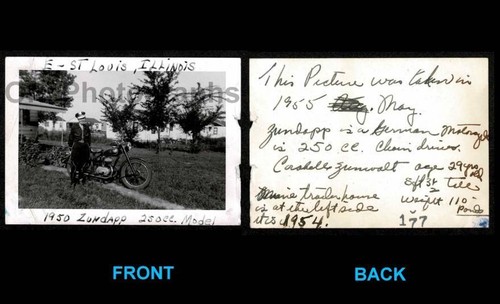 E-ST LOUIS, ILLINOIS
1950 ZUNDAPP 250 CC. Model
This Picture was taken in
1955 May.
Zundapp is a German Motorcycle
is 250 cc. Chain driven.
Zumwalt age 29 yrs old
5 ft 5 tall
weight 110
Pounds
trailer house
is at the left side
it is 1954.
177
FRONT
BACK